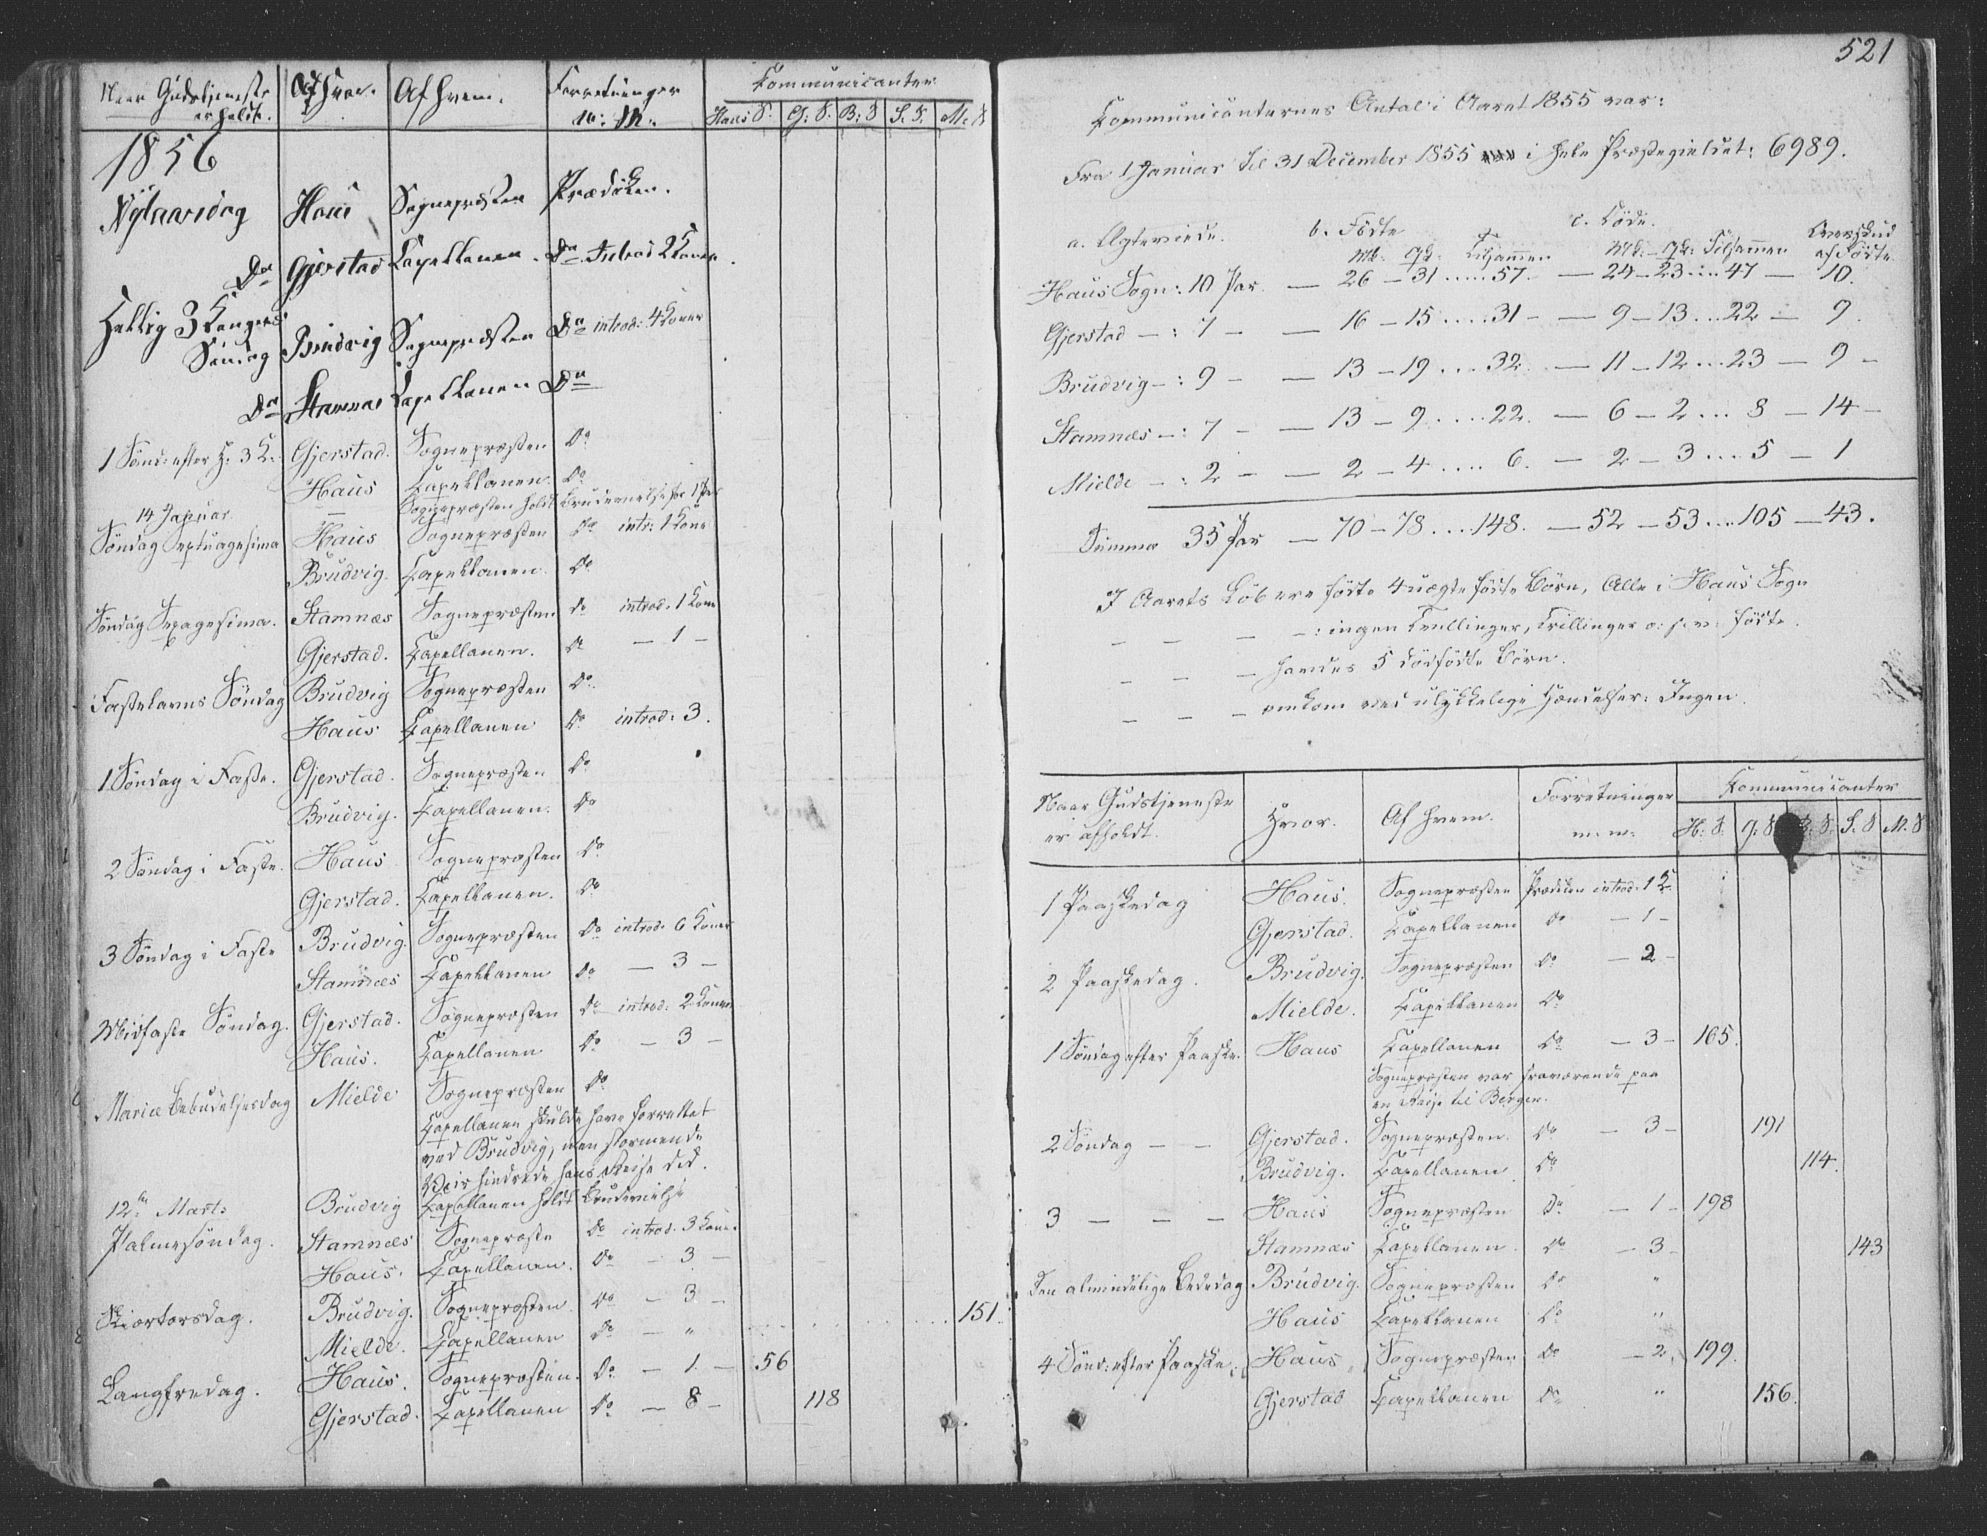 Naar Gudstjeneste er holdt. Af hvor. Af hvem. Forretninger m: m. Kommunicanter
Haus S. G: S. B: S S. S. M. S
1856
Nytaarsdag Haus Sognepræsten Prædiken.
Do Gjerstad Capellanen. Do Introd 2 Koner.
Hellig 3 Kongers Søndag Brudvig Sognepræsten Do introd: 4 Koner
Do Stamnæs Capellanen Do
1 Sønd: efter H. 3 K. Gjerstad. Sognepræsten Do
Haus Capellanen. Do
14 Januar — Sognepræsten holdt Brudevielse for 1 Par
Søndag Septuagesima Haus Sognepræsten Do intr: 1 Kone
Brudvig. Capellanen. Do
Søndag Sexagesima. Stamnæs Sognepræsten do introd. 1 Kone
Gjerstad. Capellanen. do — 1 —
Fastelavns Søndag Brudvig Sognepræsten Do
Haus Capellanen Do introd: 3.
1 Søndag i Faste. Gjerstad. Sognepræsten Do
Brudvig. Capellanen. Do
2 Søndag i Faste. Haus Sognepræsten Do
Gjerstad. Capellanen. Do
3 Søndag i Faste Brudvig. Sognepræsten Do introd. 6 Koner
Stamnæs Capellanen Do — 3 —
Midfaste Søndag. Gjerstad. Sognepræsten Do introd: 2 Koner
Haus. Capellanen Do — 3 —
Mariæ Bebudelsesdag Mielde Sognepræsten Do
Capellanen skulde have forrettet
ved Brudvig, men stormende
Veir hindrede hans Reise did.
12te Marts Brudvig Capellanen holdt Brudevielse
Palmesøndag. Stamnæs Sognepræste Do introd. 3 Kone.
Haus. Capellanen. Do — 3
Skiærtorsdag. Brudvig. Sognepræsten. Do — 3 —
Mielde. Capellanen Do — " 151.
Langfredag. Haus. Sognepræsten. Do — 1. — 56
Gjerstad. Capellanen Do — 8 — 118
521
Communicanternes Antal i Aaret 1855 var:
Fra 1 Januar til 31 December 1855 i hele Præstegieldet: 6989.
a. Ægteviede. b. Fødte c. Døde. Overskud af Fødte
Mk. Qk. Tilsammen Mk: Qk: Tilsammen
Haus Sogn: 10 Par — 26 — 31 ..... 57 — 24 — 23 .... 47 — 10.
Gjerstad — : 7 — — 16 — 15 .... 31 — 9 — 13 ... 22 — 9.
Brudvig — : 9 — — 13 — 19 .... 32. — 11 — 12 ... 23 — 9 —
Stamnæs — : 7 — — 13 — 9 .... 22. — 6 — 2 ... 8 — 14 —
Mielde — : 2 — — 2 — 4 .... 6. — 2 — 3 ... 5 — 1
Summa 35 Par — 70 — 78 .... 148. — 52 — 53 .... 105 — 43.
I Aarets Løb ere fødte 4 uægte fødte Børn, Alle i Haus Sogn
— — — — : ingen Tvillinger, Trillinger o: s. v: fødte.
— — — fandtes 5 dødfødte Børn.
— — — omkom ved ulykkelige Hændelser: Ingen.
Naar Gudstjeneste er afholdt. Hvor. Af hvem. Forretninger m: m: Kommunicanter
H: S. G: S. B: S. S. S M. S
1 Paaskedag Haus. Sognepræsten Prædiken introd: 1 K.
Gjerstad. Capellanen Do — 1 —
2 Paaskedag. Brudvig. Sognepræsten Do — 2 —
Mielde. Capellanen Do
1 Søndag efter Paaske. Haus Capellanen Do — 3 — 165.
Sognepræsten var fraværende paa
en Reise til Bergen.
2 Søndag — — Gjerstad. Sognepræsten. Do — 3 — 191
Brudvig. Capellanen Do 114.
3 — — — Haus Sognepræsten Do — 1 — 198
Stamnæs Capellanen. Do — 3 — 143
Den almindelige Bededag Brudvig. Sognepræsten Do "
Haus Capellanen Do "
4 Sønd: efter Paaske. Haus Sognepræsten Do — 2. 199.
Gjerstad Capellanen Do " 156.